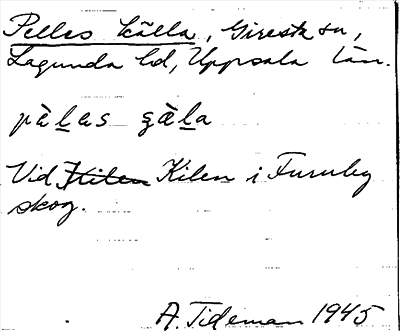 Pelles källa, Giresta sn,
Lagunda hd, Uppsala län.
pὰḻas ʂὰḻa
Vid Kilen i Furuby
skog.
A. Tideman 1945